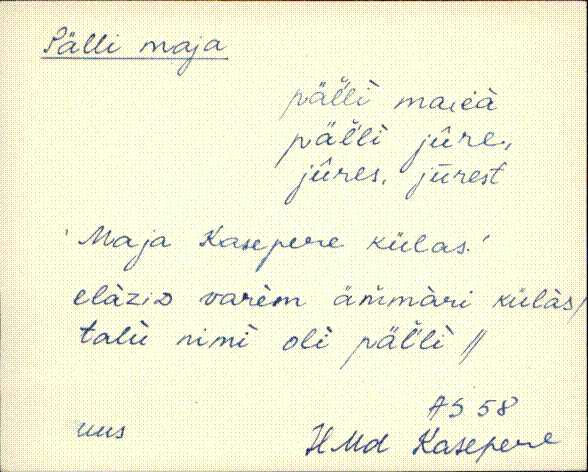 Pälli maja
päl̆l̀ì maıèà
päl̆l̀ì jûre,
jûres, jūrest
'Maja Kasepere külas.'
elàzıᴅ varèm ämmàri külàs/
talù nimì oli päl̆l̀ì //
AS 58
uus
HMd Kasepere